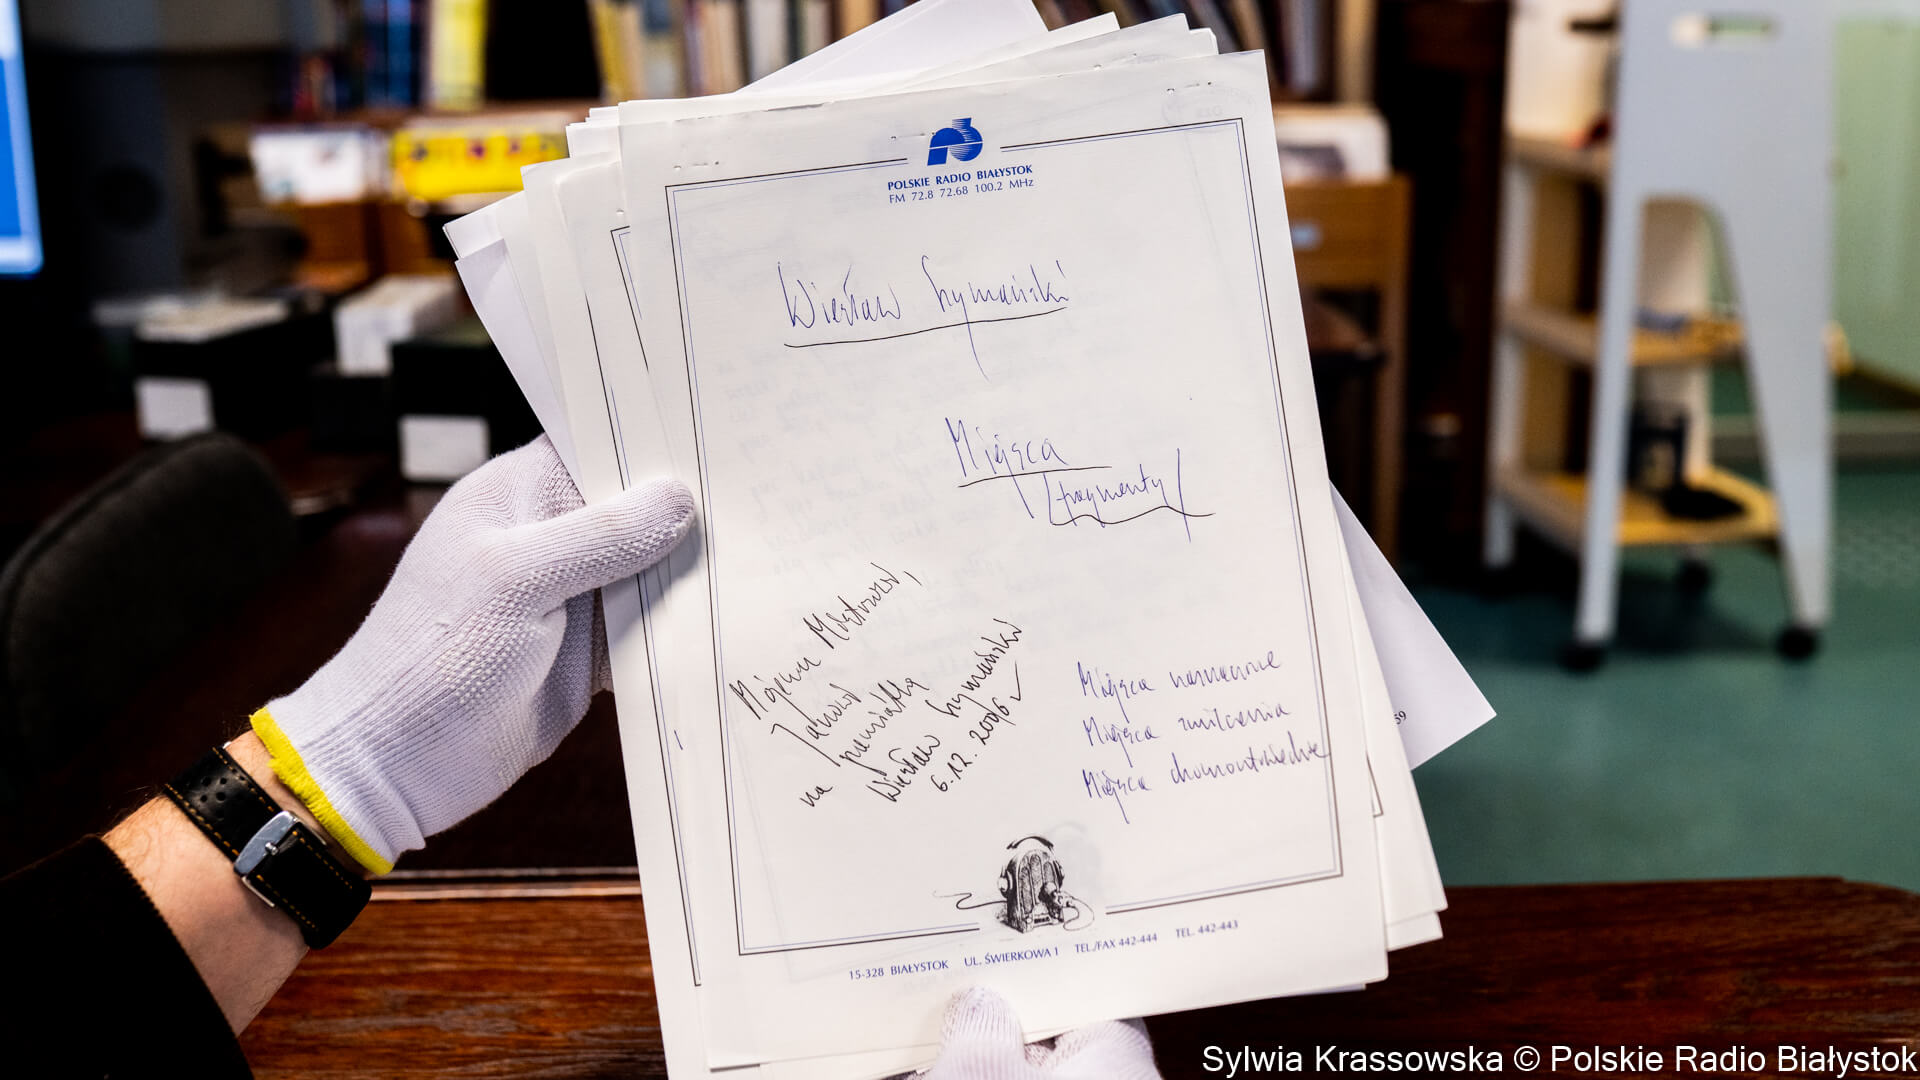 POLSKIE RADIO BIAŁYSTOK
FM 72.8 72.68 100.2 MHz
Wiesław Szymański
Miejsca
/fragmenty/
Mojemu Mistrzowi,
Janowi
na pamiątkę
Wiesław Szymański
6.12.2006
Miejsca naznaczone
Miejsca milczenia
Miejsca
59
15-328 BIAŁYSTOK UL. ŚWIERKOWA 1 TEL./FAX 442-444 TEL. 442-443
Sylwia Krassowska © Polskie Radio Białystok